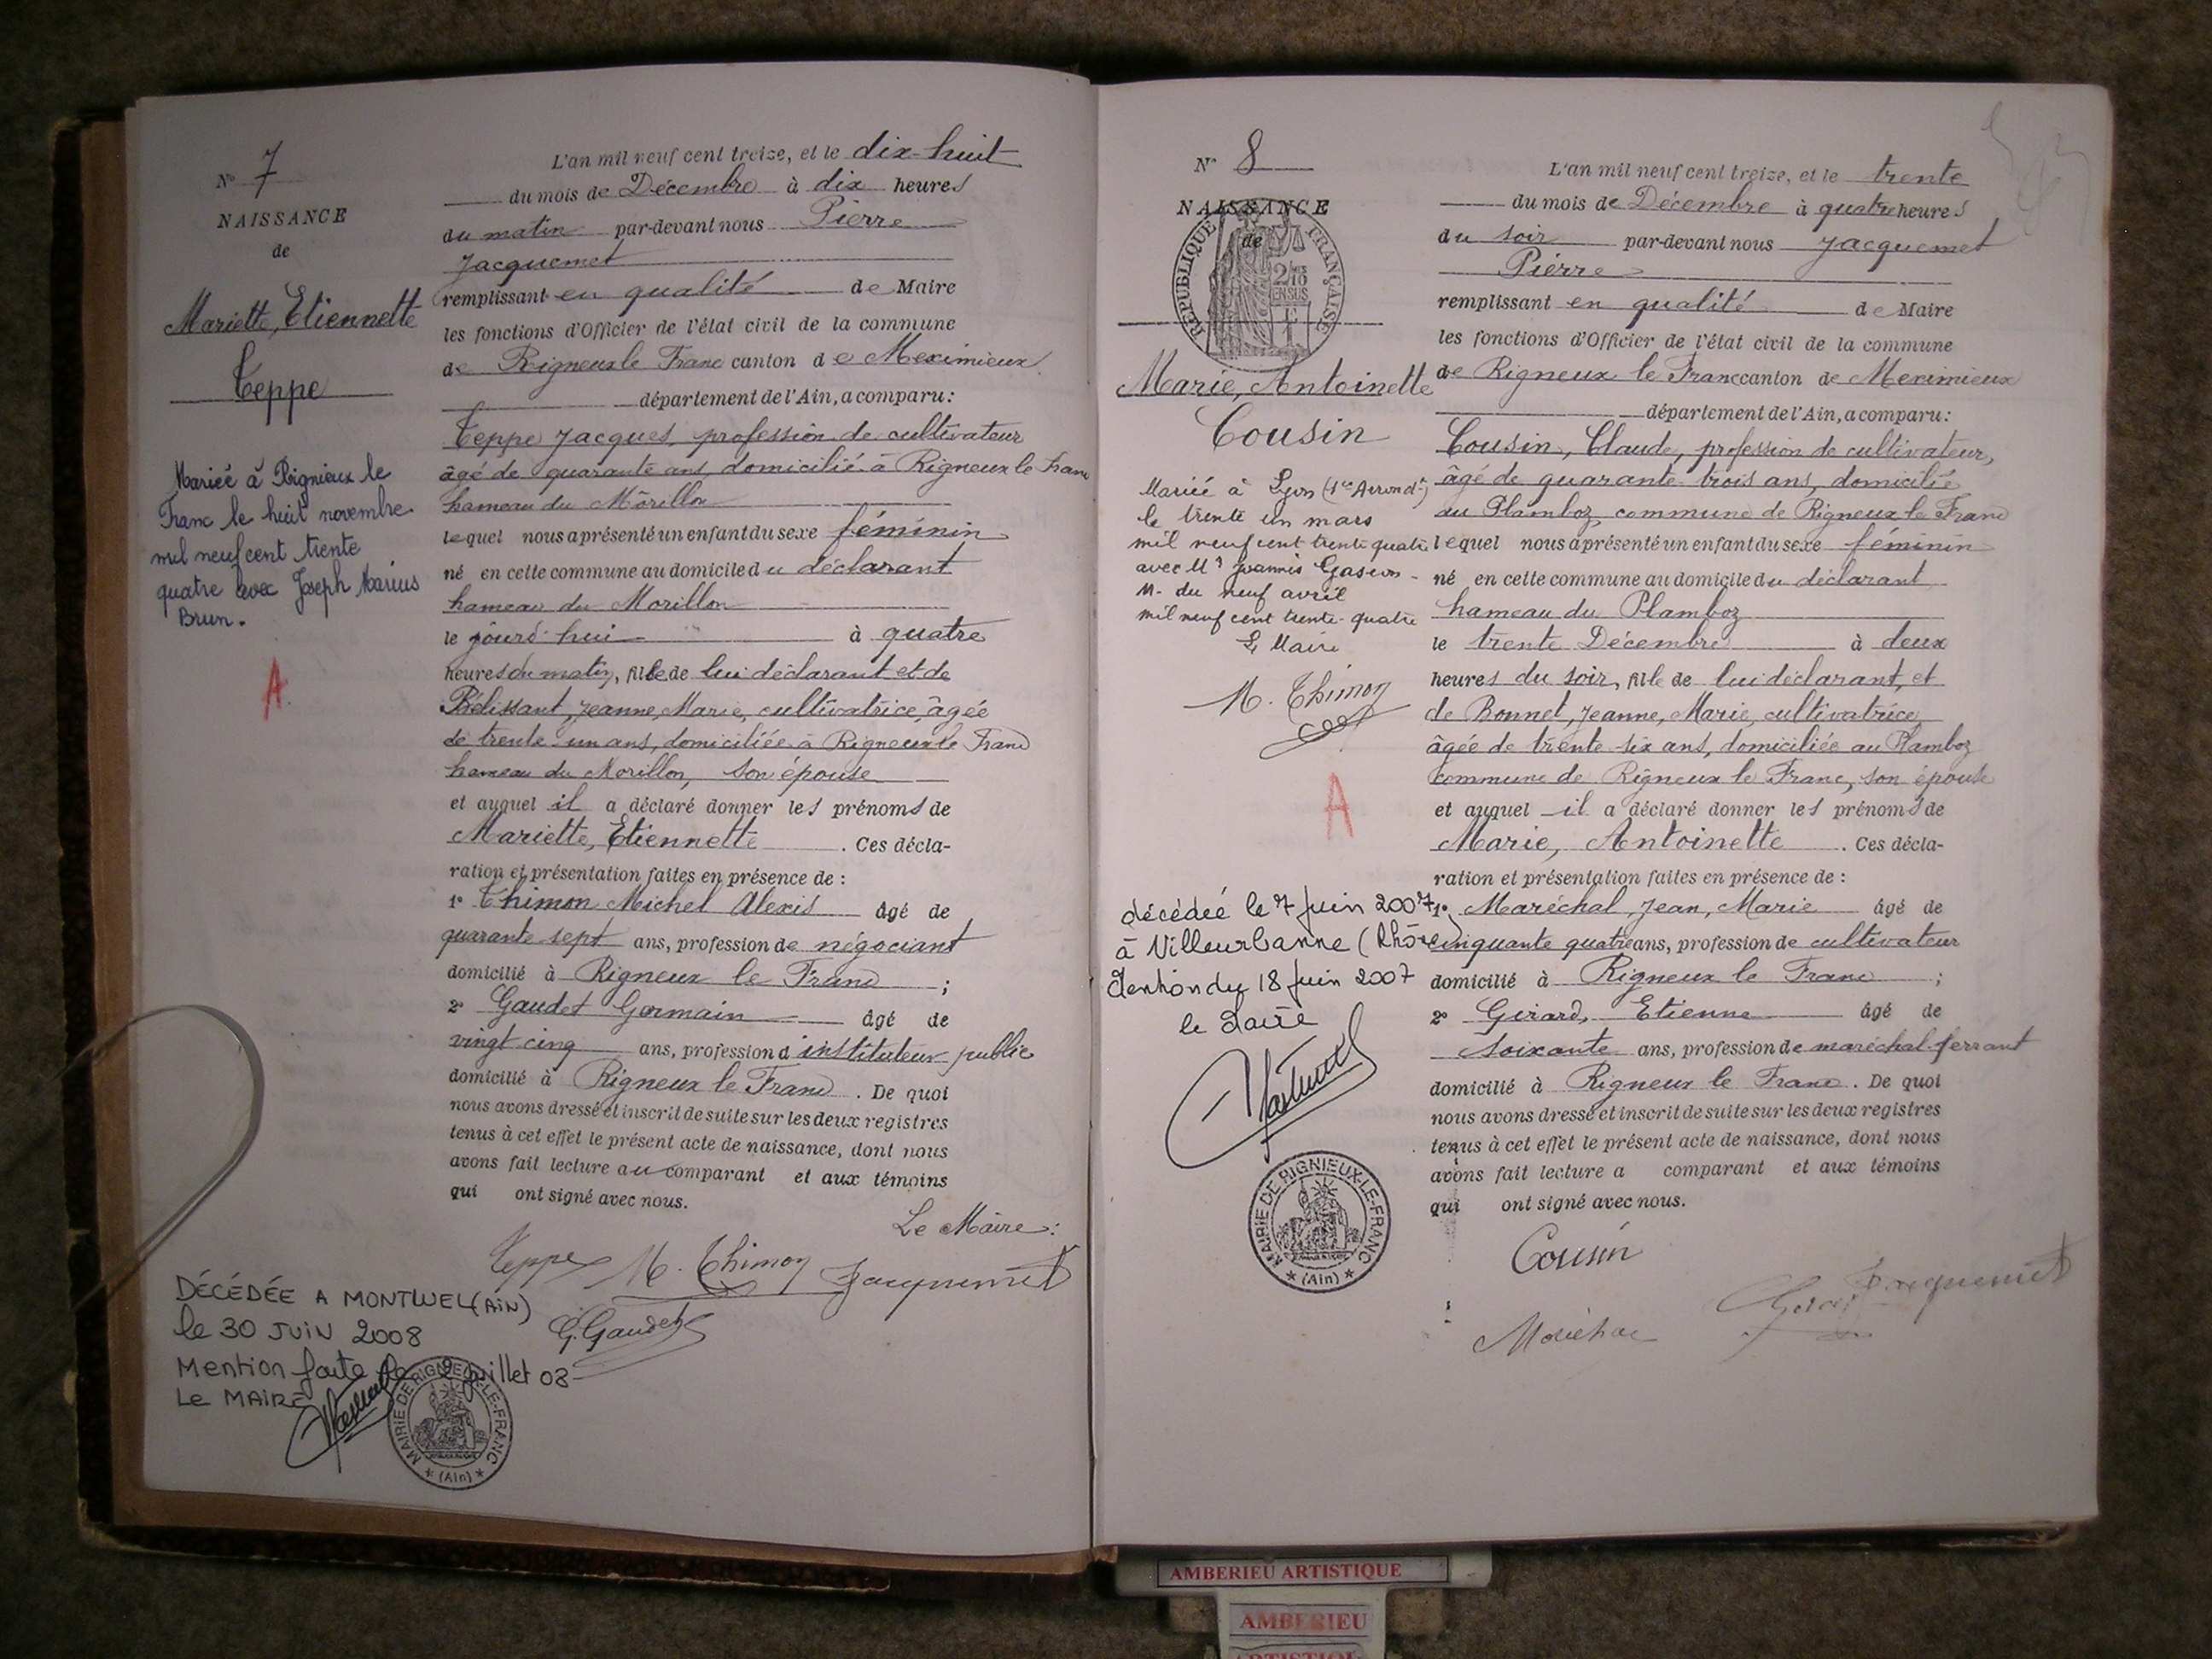 N° 7
NAISSANCE
de
Mariette, Etiennette
Teppe
Mariée à Rignieux le
Franc le huit novembre
mil neuf cent trente
quatre avec Joseph Marius
Brun.
A
L'an mil neuf cent treize, et le dix-huit
du mois de Décembre à dix heures
du matin par-devant nous Pierre
Jacquemet
remplissant en qualité de Maire
les fonctions d'Officier de l'état civil de la commune
de Rigneux le Franc canton de Meximieux
département de l'Ain, a comparu:
Teppe Jacques, profession de cultivateur
âgé de quarante ans, domicilié à Rigneux le Franc
hameau du Morillon
lequel nous a présenté un enfant du sexe féminin
né en cette commune au domicile du déclarant
hameau du Morillon
le jourd'hui à quatre
heures du matin, fille de lui déclarant et de
Pélissant, Jeanne, Marie, cultivatrice, âgée
de trente-un ans, domiciliée à Rigneux le Franc
hameau du Morillon, son épouse
et auquel il a déclaré donner les prénoms de
Mariette, Etiennette. Ces décla-
ration et présentation faites en présence de :
1° Thimon Michel Alexis âgé de
quarante sept ans, profession de négociant
domicilié à Rigneux le Franc ;
2° Gaudet Germain âgé de
vingt cinq ans, profession d'instituteur public
domicilié à Rigneux le Franc. De quoi
nous avons dressé et inscrit de suite sur les deux registres
tenus à cet effet le présent acte de naissance, dont nous
avons fait lecture au comparant et aux témoins
qui ont signé avec nous.
Le Maire :
Teppe M. Thimon Jacquemet
G. Gaudet
DÉCÉDÉE A MONTLUEL (AIN)
le 30 JUIN 2008
Mention faite le 2 juillet 08
Le MAIRE
MAIRIE DE RIGNIEUX-LE-FRANC
* (Ain) *
N° 8
NAISSANCE
de
REPUBLIQUE FRANÇAISE
2/10
EN SUS
Marie, Antoinette
Cousin
Mariée à Lyon (1er Arrondt)
le trente un mars
mil neuf cent trente quatre
avec Mr Joannis Gascon -
M. du neuf avril
mil neuf cent trente-quatre
Le Maire
M. Thimon
A
décédée le 7 Juin 2007
à Villeurbanne (Rhône)
Mention du 18 Juin 2007
le Maire
MAIRIE DE RIGNIEUX-LE-FRANC
* (Ain) *
L'an mil neuf cent treize, et le trente
du mois de Décembre à quatre heures
du soir par-devant nous Jacquemet
Pierre
remplissant en qualité de Maire
les fonctions d'Officier de l'état civil de la commune
de Rigneux le Franc canton de Meximieux
département de l'Ain, a comparu:
Cousin, Claude, profession de cultivateur,
âgé de quarante trois ans, domicilié
au Plamboz, commune de Rigneux le Franc
lequel nous a présenté un enfant du sexe féminin
né en cette commune au domicile du déclarant
hameau du Plamboz
le trente Décembre à deux
heures du soir, fille de lui déclarant, et
de Bonnet, Jeanne, Marie, cultivatrice,
âgée de trente-six ans, domiciliée au Plamboz
commune de Rigneux le Franc, son épouse
et auquel il a déclaré donner les prénoms de
Marie, Antoinette. Ces décla-
ration et présentation faites en présence de :
1° Maréchal, Jean, Marie âgé de
cinquante quatre ans, profession de cultivateur
domicilié à Rigneux le Franc ;
2° Girard, Etienne âgé de
soixante ans, profession de maréchal-ferrant
domicilié à Rigneux le Franc. De quoi
nous avons dressé et inscrit de suite sur les deux registres
tenus à cet effet le présent acte de naissance, dont nous
avons fait lecture a comparant et aux témoins
qui ont signé avec nous.
Cousin
Girard Jacquemet
Maréchal
AMBERIEU ARTISTIQUE
AMBERIEU
ARTISTIQUE